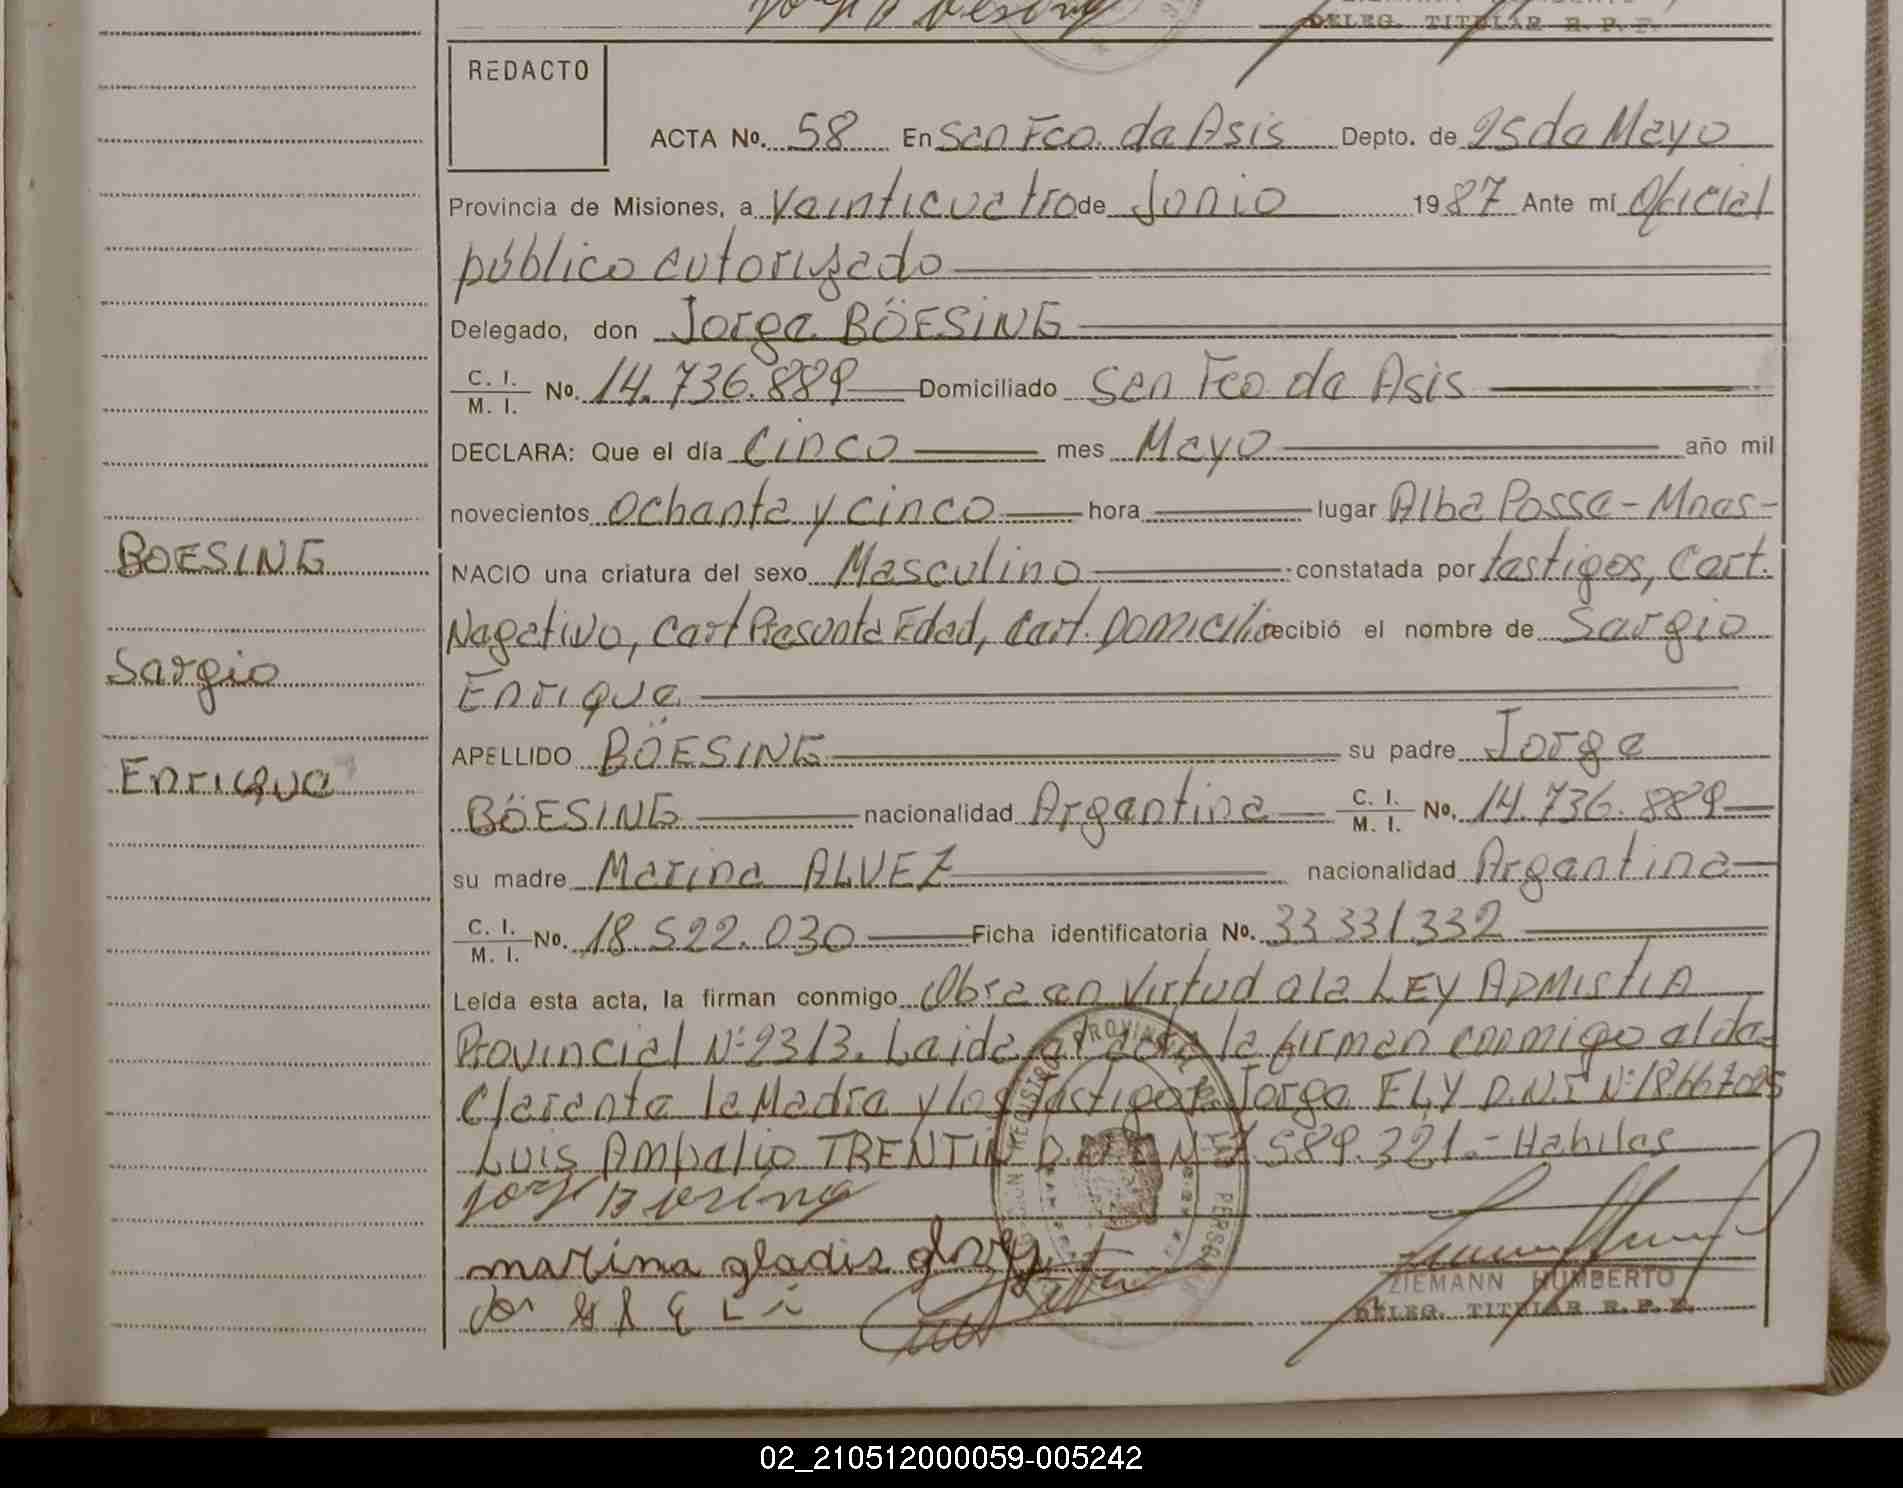 DELEG. TITULAR R. P. P.
REDACTO
ACTA No. 58 En San Fco. de Asis Depto. de 25 de Mayo
Provincia de Misiones, a Veinticuatro de Junio 1987 Ante mí Oficial
público autorizado
Delegado, don Jorge BÖESING
C. I. / M. I. No. 14.736.889 Domiciliado San Fco de Asis
DECLARA: Que el día Cinco mes Mayo año mil
novecientos Ochenta y cinco hora lugar Alba Posse - Mnes-
BOESING
NACIO una criatura del sexo Masculino constatada por testigos, Cert.
Negativo, Cert Presunta Edad, Cert. Domicilio recibió el nombre de Sergio
Sergio
Enrique
APELLIDO BÖESING su padre Jorge
Enrique
BÖESING nacionalidad Argentina C. I. / M. I. No. 14.736.889
su madre Marina ALVEZ nacionalidad Argentina
C. I. / M. I. No. 18.522.030 Ficha identificatoria No. 33 331.332
Leída esta acta, la firman conmigo Obra en Virtud a la LEY ADMISTIA
Provincial Nº 2313. Leida el acta la firman conmigo el de-
clarante la Madre y los testigos Jorge ELY D.N.I Nº 18667025
Luis Ampelio TRENTIN 589.321.- Habiles
Jorge Boesing
marina gladis
ZIEMANN HUMBERTO
DELEG. TITULAR R. P. P.
02_210512000059-005242